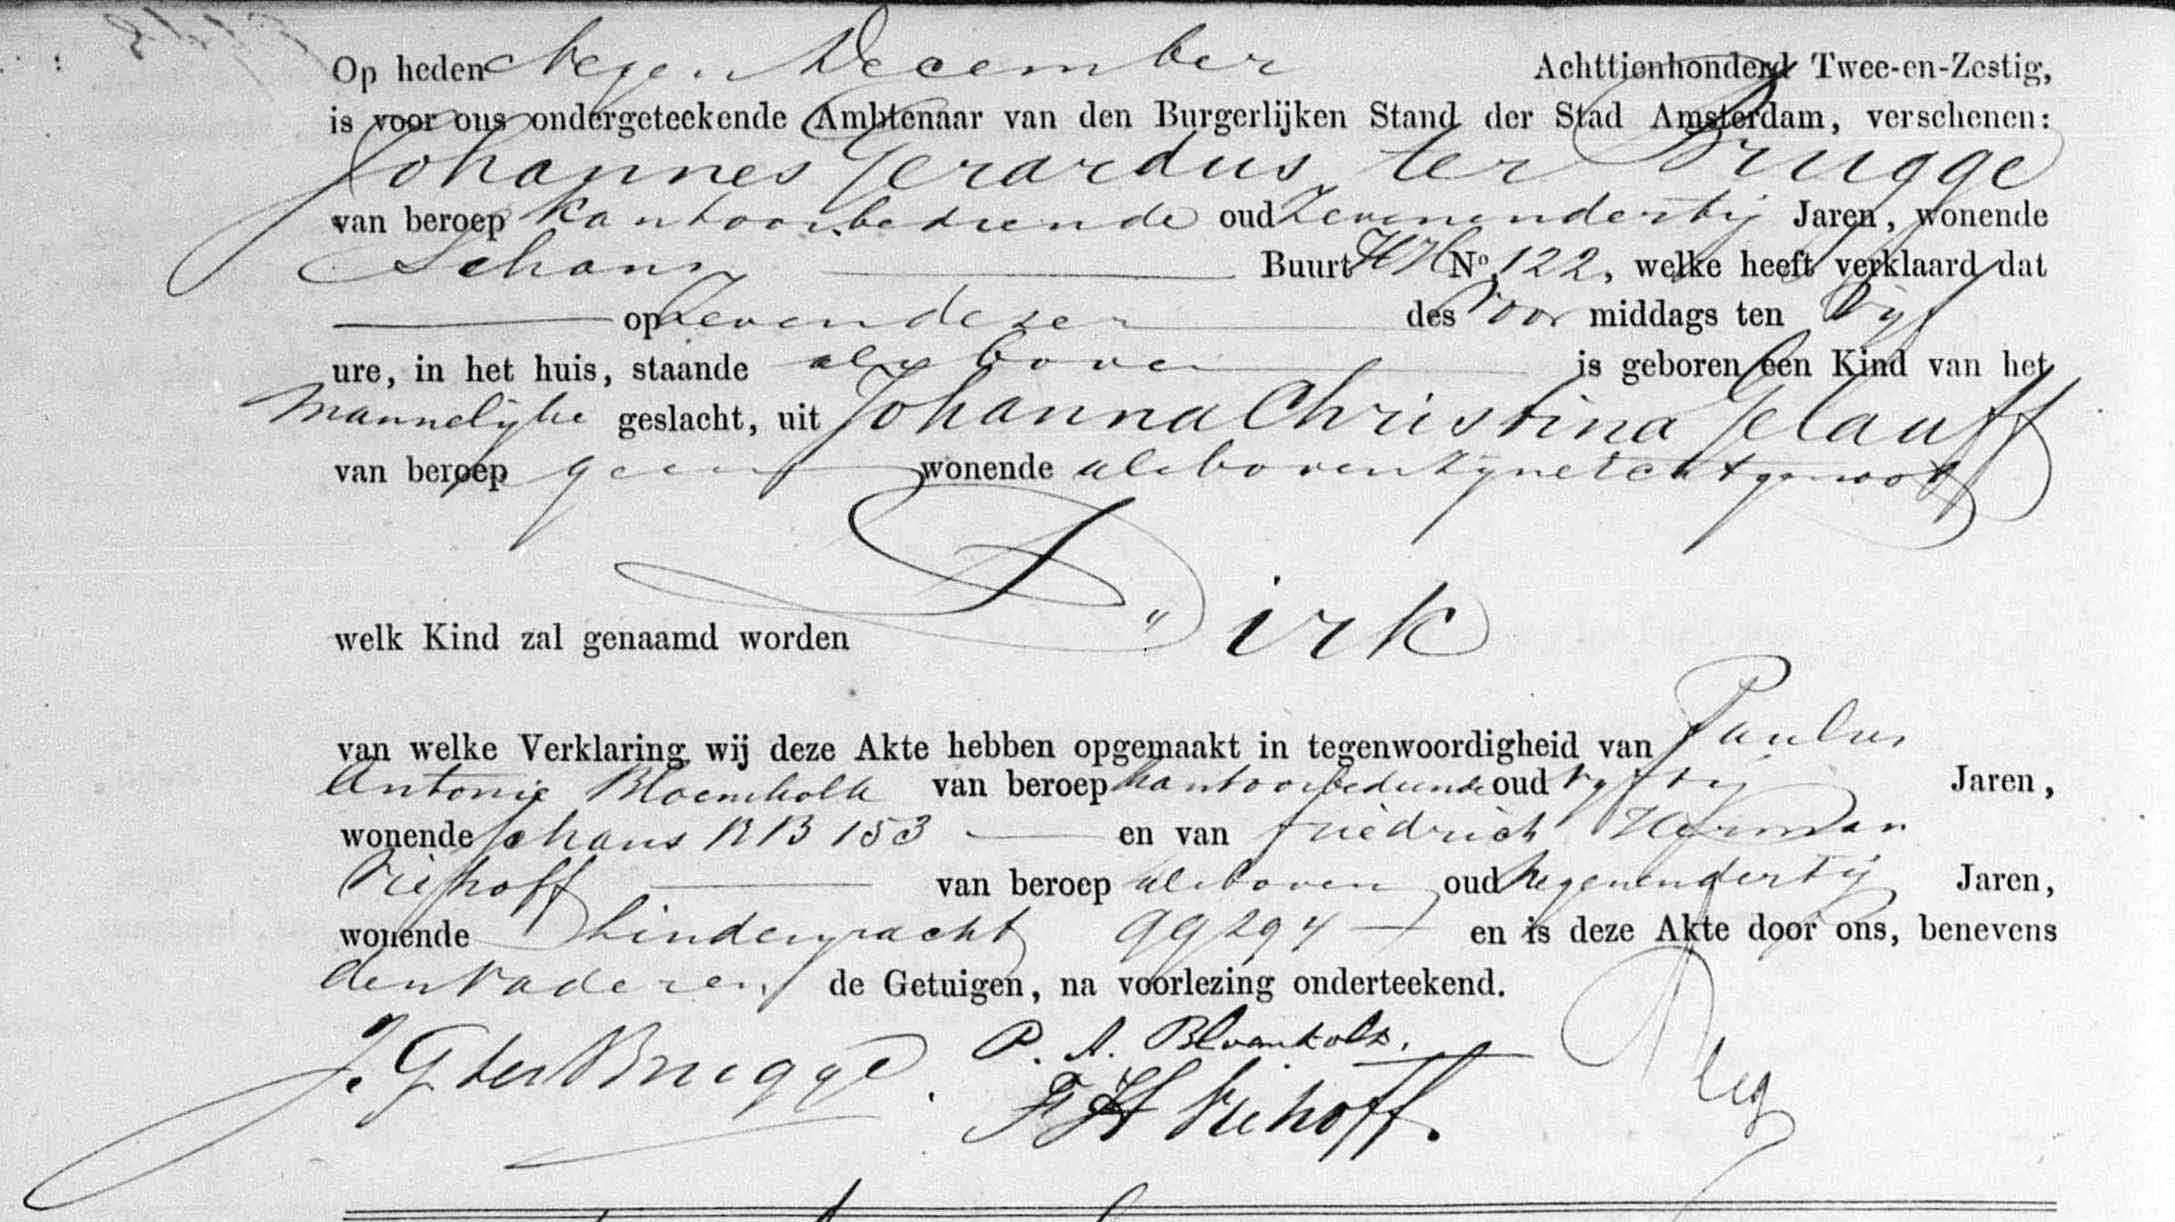 Op heden Negen December Achttienhonderd Twee-en-Zestig,
is voor ons ondergeteekende Ambtenaar van den Burgerlijken Stand der Stad Amsterdam, verschenen:
Johannes Gerardus ter Brugge
van beroep kantoorbediende oud Zevenendertig Jaren, wonende
Schans Buurt HH No. 122, welke heeft verklaard dat
op Zeven dezer des Voor middags ten Vyf
ure, in het huis, staande als boven is geboren een Kind van het
Mannelyke geslacht, uit Johanna Christina Gelauff
van beroep geen wonende als boven zyne Echtgenoot
welk Kind zal genaamd worden Dirk
van welke Verklaring wij deze Akte hebben opgemaakt in tegenwoordigheid van Paulus
Antonie Bloemkolk van beroep kantoorbediende oud vyftig Jaren,
wonende Schans BB 153 en van Friedrich Herman
Viehoff van beroep als boven oud Negenendertig Jaren,
wonende Lindengracht GG 294 en is deze Akte door ons, benevens
den Vader en de Getuigen, na voorlezing onderteekend.
J. G. ter Brugge. P. A. Bloemkolk.
F H Viehoff.